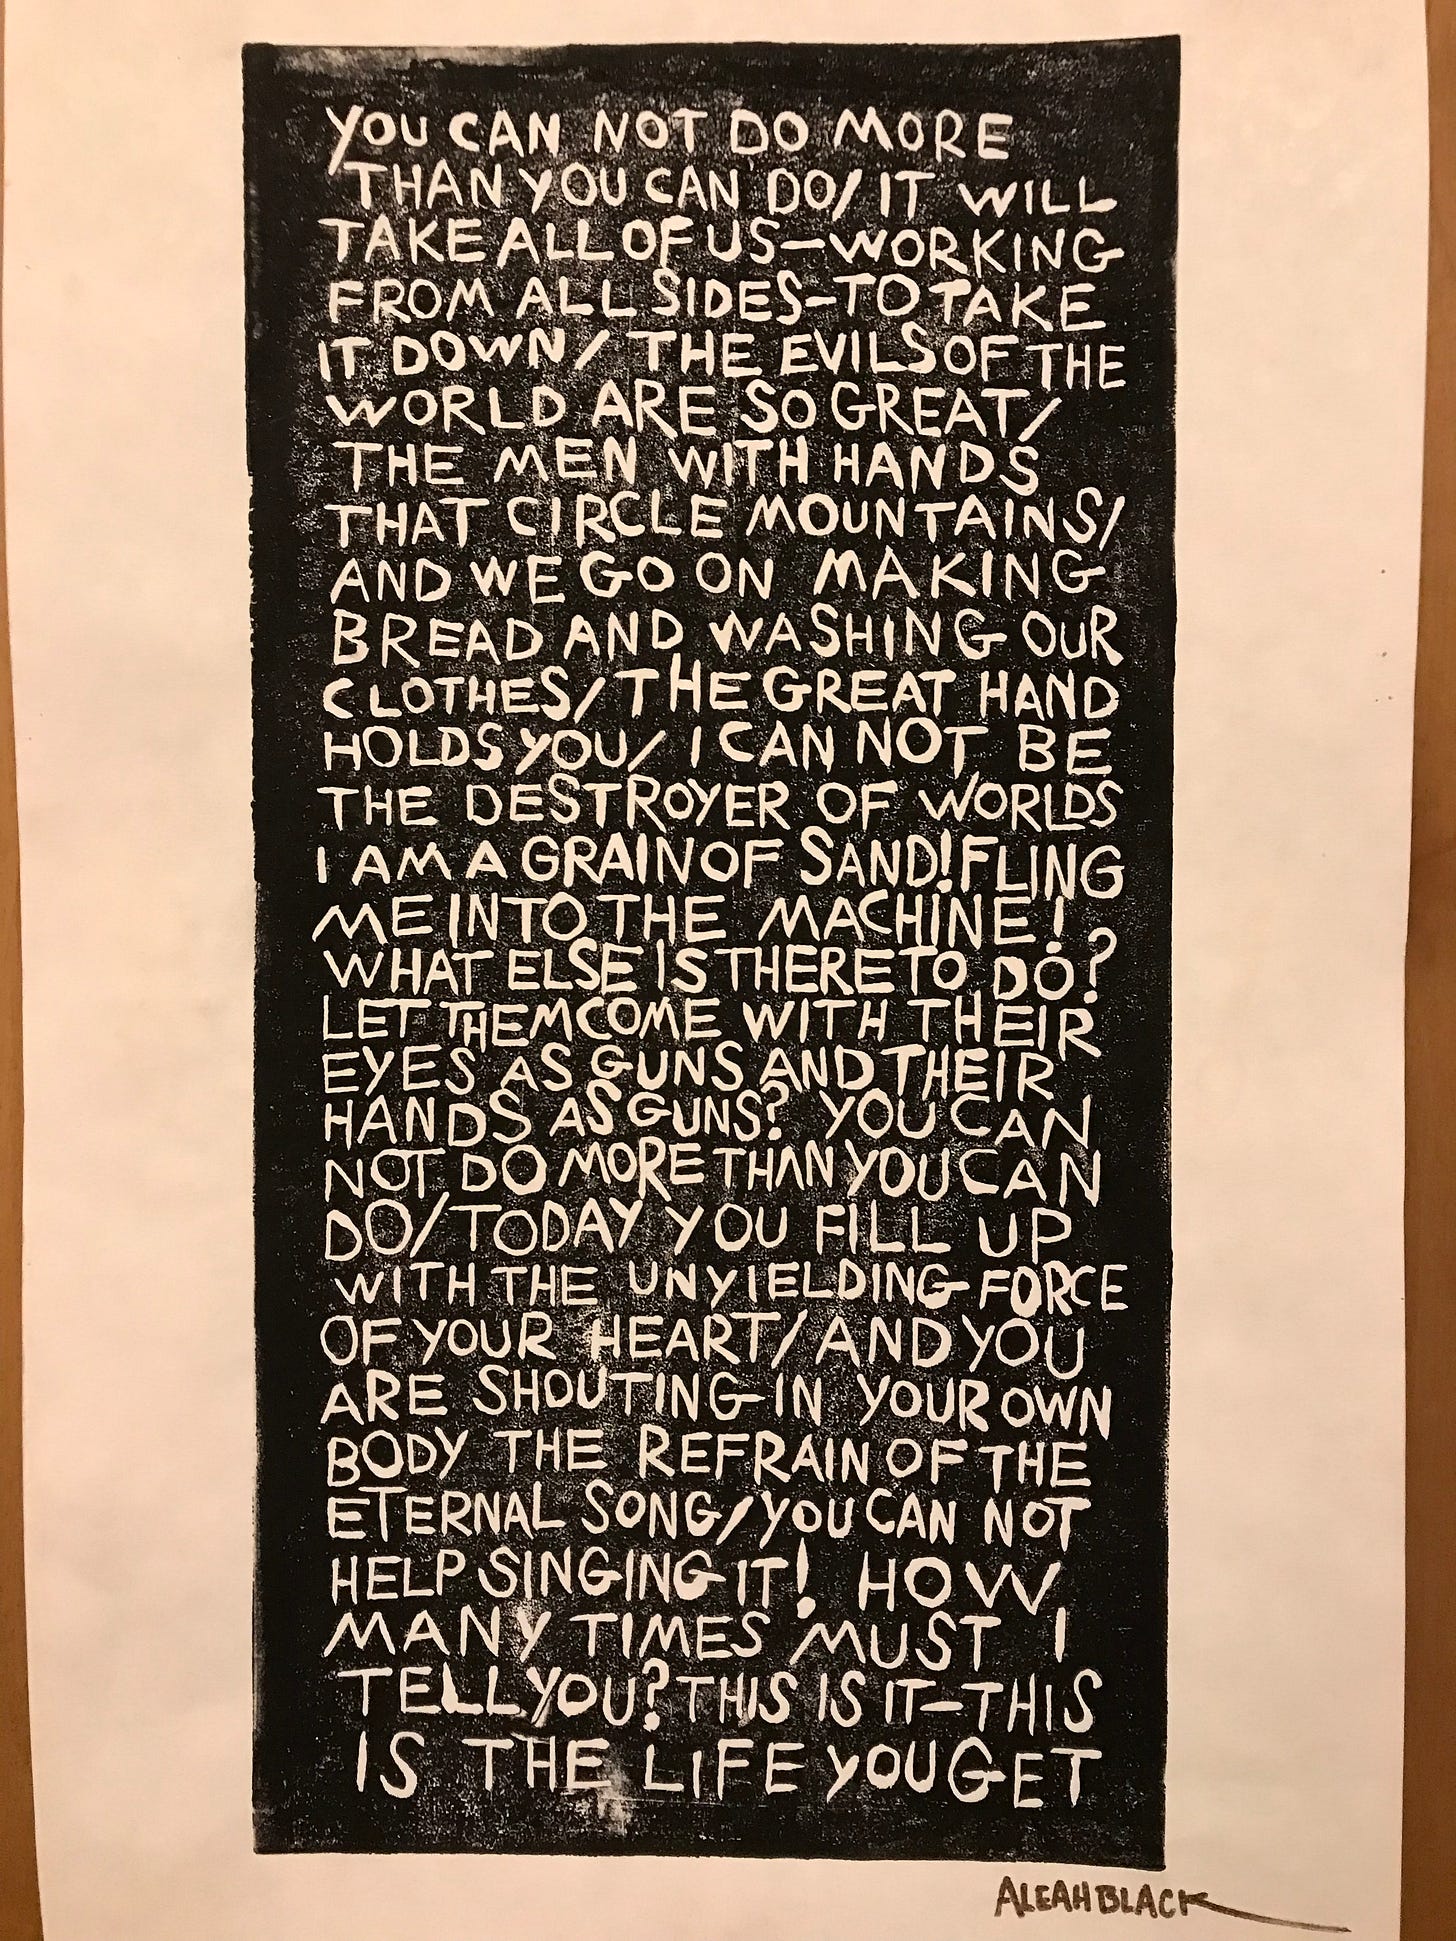 YOU CAN NOT DO MORE
THAN YOU CAN DO/ IT WILL
TAKE ALL OF US—WORKING
FROM ALL SIDES—TO TAKE
IT DOWN/ THE EVILS OF THE
WORLD ARE SO GREAT/
THE MEN WITH HANDS
THAT CIRCLE MOUNTAINS/
AND WE GO ON MAKING
BREAD AND WASHING OUR
CLOTHES/ THE GREAT HAND
HOLDS YOU/ I CAN NOT BE
THE DESTROYER OF WORLDS
I AM A GRAIN OF SAND! FLING
ME INTO THE MACHINE!
WHAT ELSE IS THERE TO DO?
LET THEM COME WITH THEIR
EYES AS GUNS AND THEIR
HANDS AS GUNS? YOU CAN
NOT DO MORE THAN YOU CAN
DO/ TODAY YOU FILL UP
WITH THE UNYIELDING FORCE
OF YOUR HEART/ AND YOU
ARE SHOUTING IN YOUR OWN
BODY THE REFRAIN OF THE
ETERNAL SONG/ YOU CAN NOT
HELP SINGING IT! HOW
MANY TIMES MUST I
TELL YOU? THIS IS IT—THIS
IS THE LIFE YOU GET
ALEAH BLACK